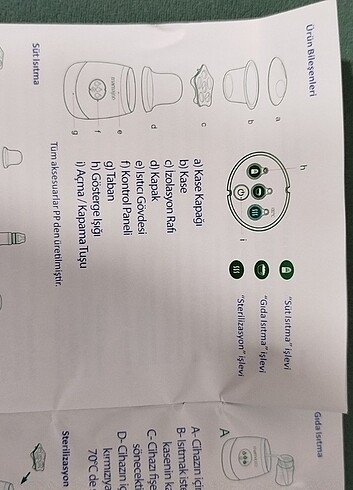 Ürün Bileşenleri
a
b
c
d
e
f
g
h
i
a) Kase Kapağı
b) Kase
c) İzolasyon Rafı
d) Kapak
e) Isıtıcı Gövdesi
f) Kontrol Paneli
g) Taban
h) Gösterge Işığı
i) Açma / Kapama Tuşu
"Süt Isıtma" işlevi
"Gıda Isıtma" işlevi
"Sterilizasyon" işlevi
Tüm aksesuarlar PP'den üretilmiştir.
Süt Isıtma
Gıda Isıtma
A
A- Cihazın iç
B- Isıtmak iste
kasenin ka
C- Cihazı fişe
sönecekti
D- Cihazın iç
kırmızıya
70°C de
Sterilizasyon